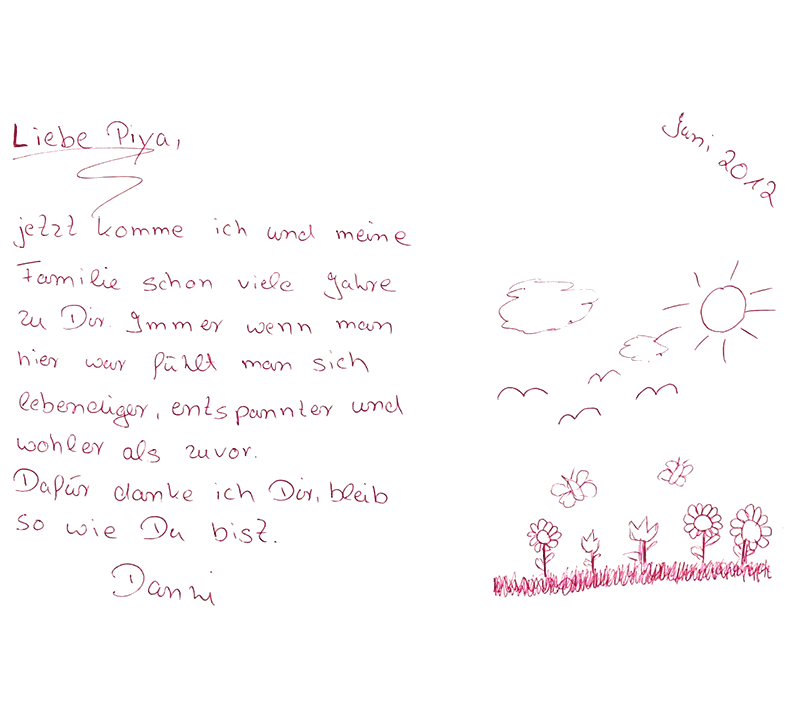 Liebe Piya,
Juni 2012
jetzt komme ich und meine
Familie schon viele Jahre
zu Dir. Immer wenn man
hier war fühlt man sich
lebendiger, entspannter und
wohler als zuvor.
Dafür danke ich Dir, bleib
so wie Du bist.
Danni